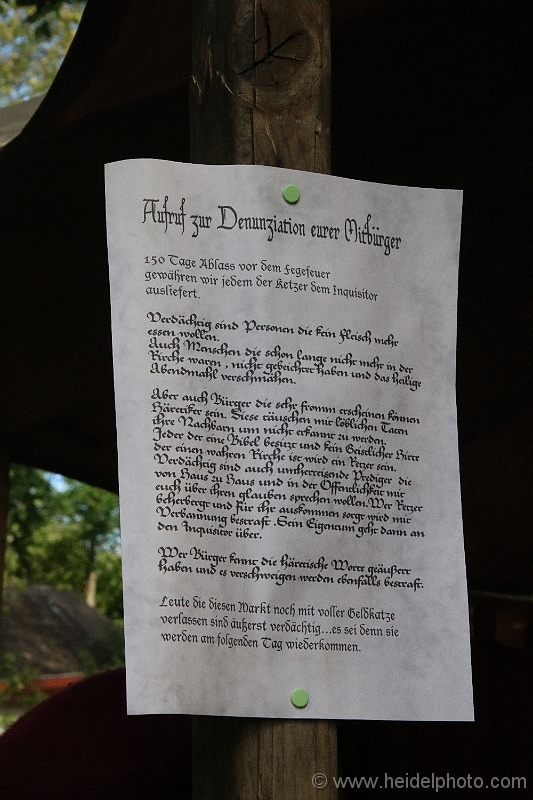 Aufruf zur Denunziation eurer Mitbürger
150 Tage Ablass vor dem Fegefeuer
gewähren wir jedem der Ketzer dem Inquisitor
ausliefert.
Verdächtig sind Personen die kein Fleisch mehr
essen wollen.
Auch Menschen die schon lange nicht mehr in der
Kirche waren , nicht gebeichtet haben und das heilige
Abendmahl verschmähen.
Aber auch Bürger die sehr fromm erscheinen können
Häretiker sein. Diese täuschen mit löblichen Taten
ihre Nachbarn um nicht erkannt zu werden.
Jeder der eine Bibel besitzt und kein Geistlicher Hirte
der einen wahren Kirche ist wird ein Ketzer sein.
Verdächtig sind auch umherreisende Prediger die
von Haus zu Haus und in der Öffentlichkeit mit
euch über ihren glauben sprechen wollen.Wer Ketzer
beherbergt und für ihr auskommen sorgt wird mit
Verbannung bestraft .Sein Eigentum geht dann an
den Inquisitor über.
Wer Bürger kennt die häretische Worte geäußert
haben und es verschweigen werden ebenfalls bestraft.
Leute die diesen Markt noch mit voller Geldkatze
verlassen sind äußerst verdächtig...es sei denn sie
werden am folgenden Tag wiederkommen.
© www.heidelphoto.com